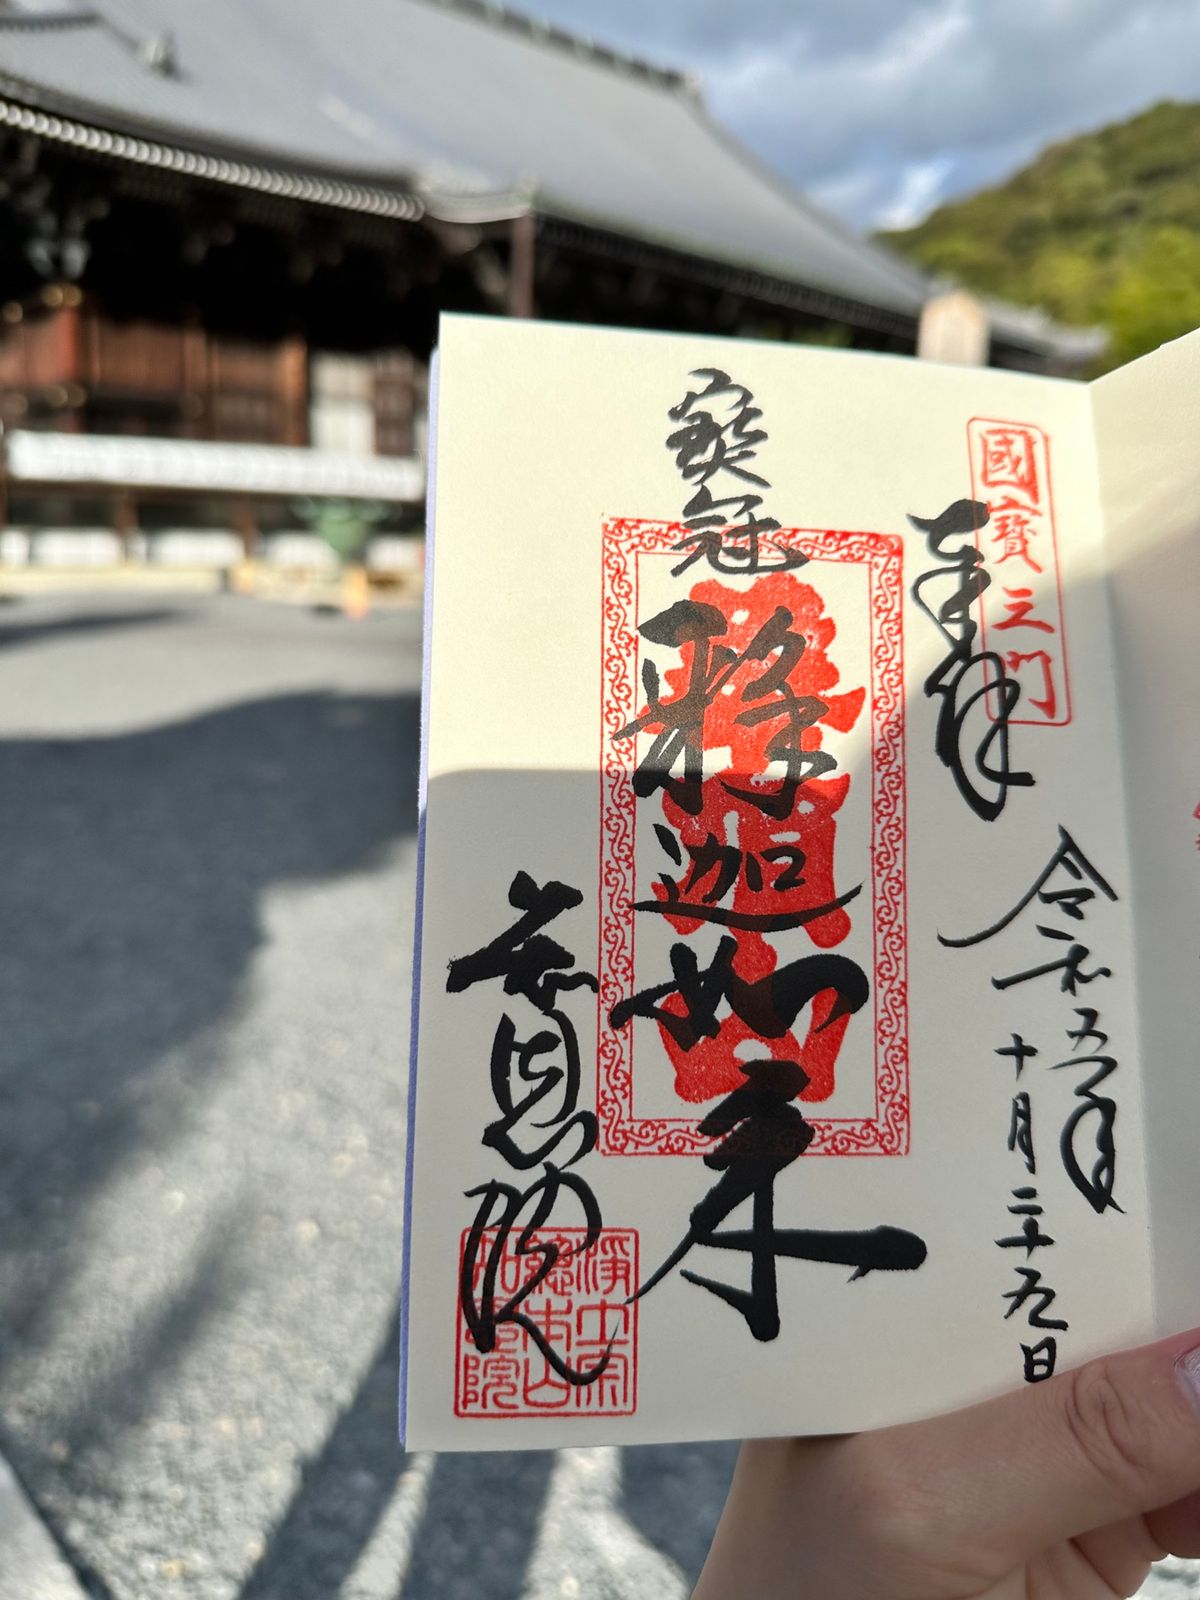 國寶三門
奉拝
令和五年
十月二十九日
寳冠
釋迦如来
知恩院
浄土宗
總本山
知恩院